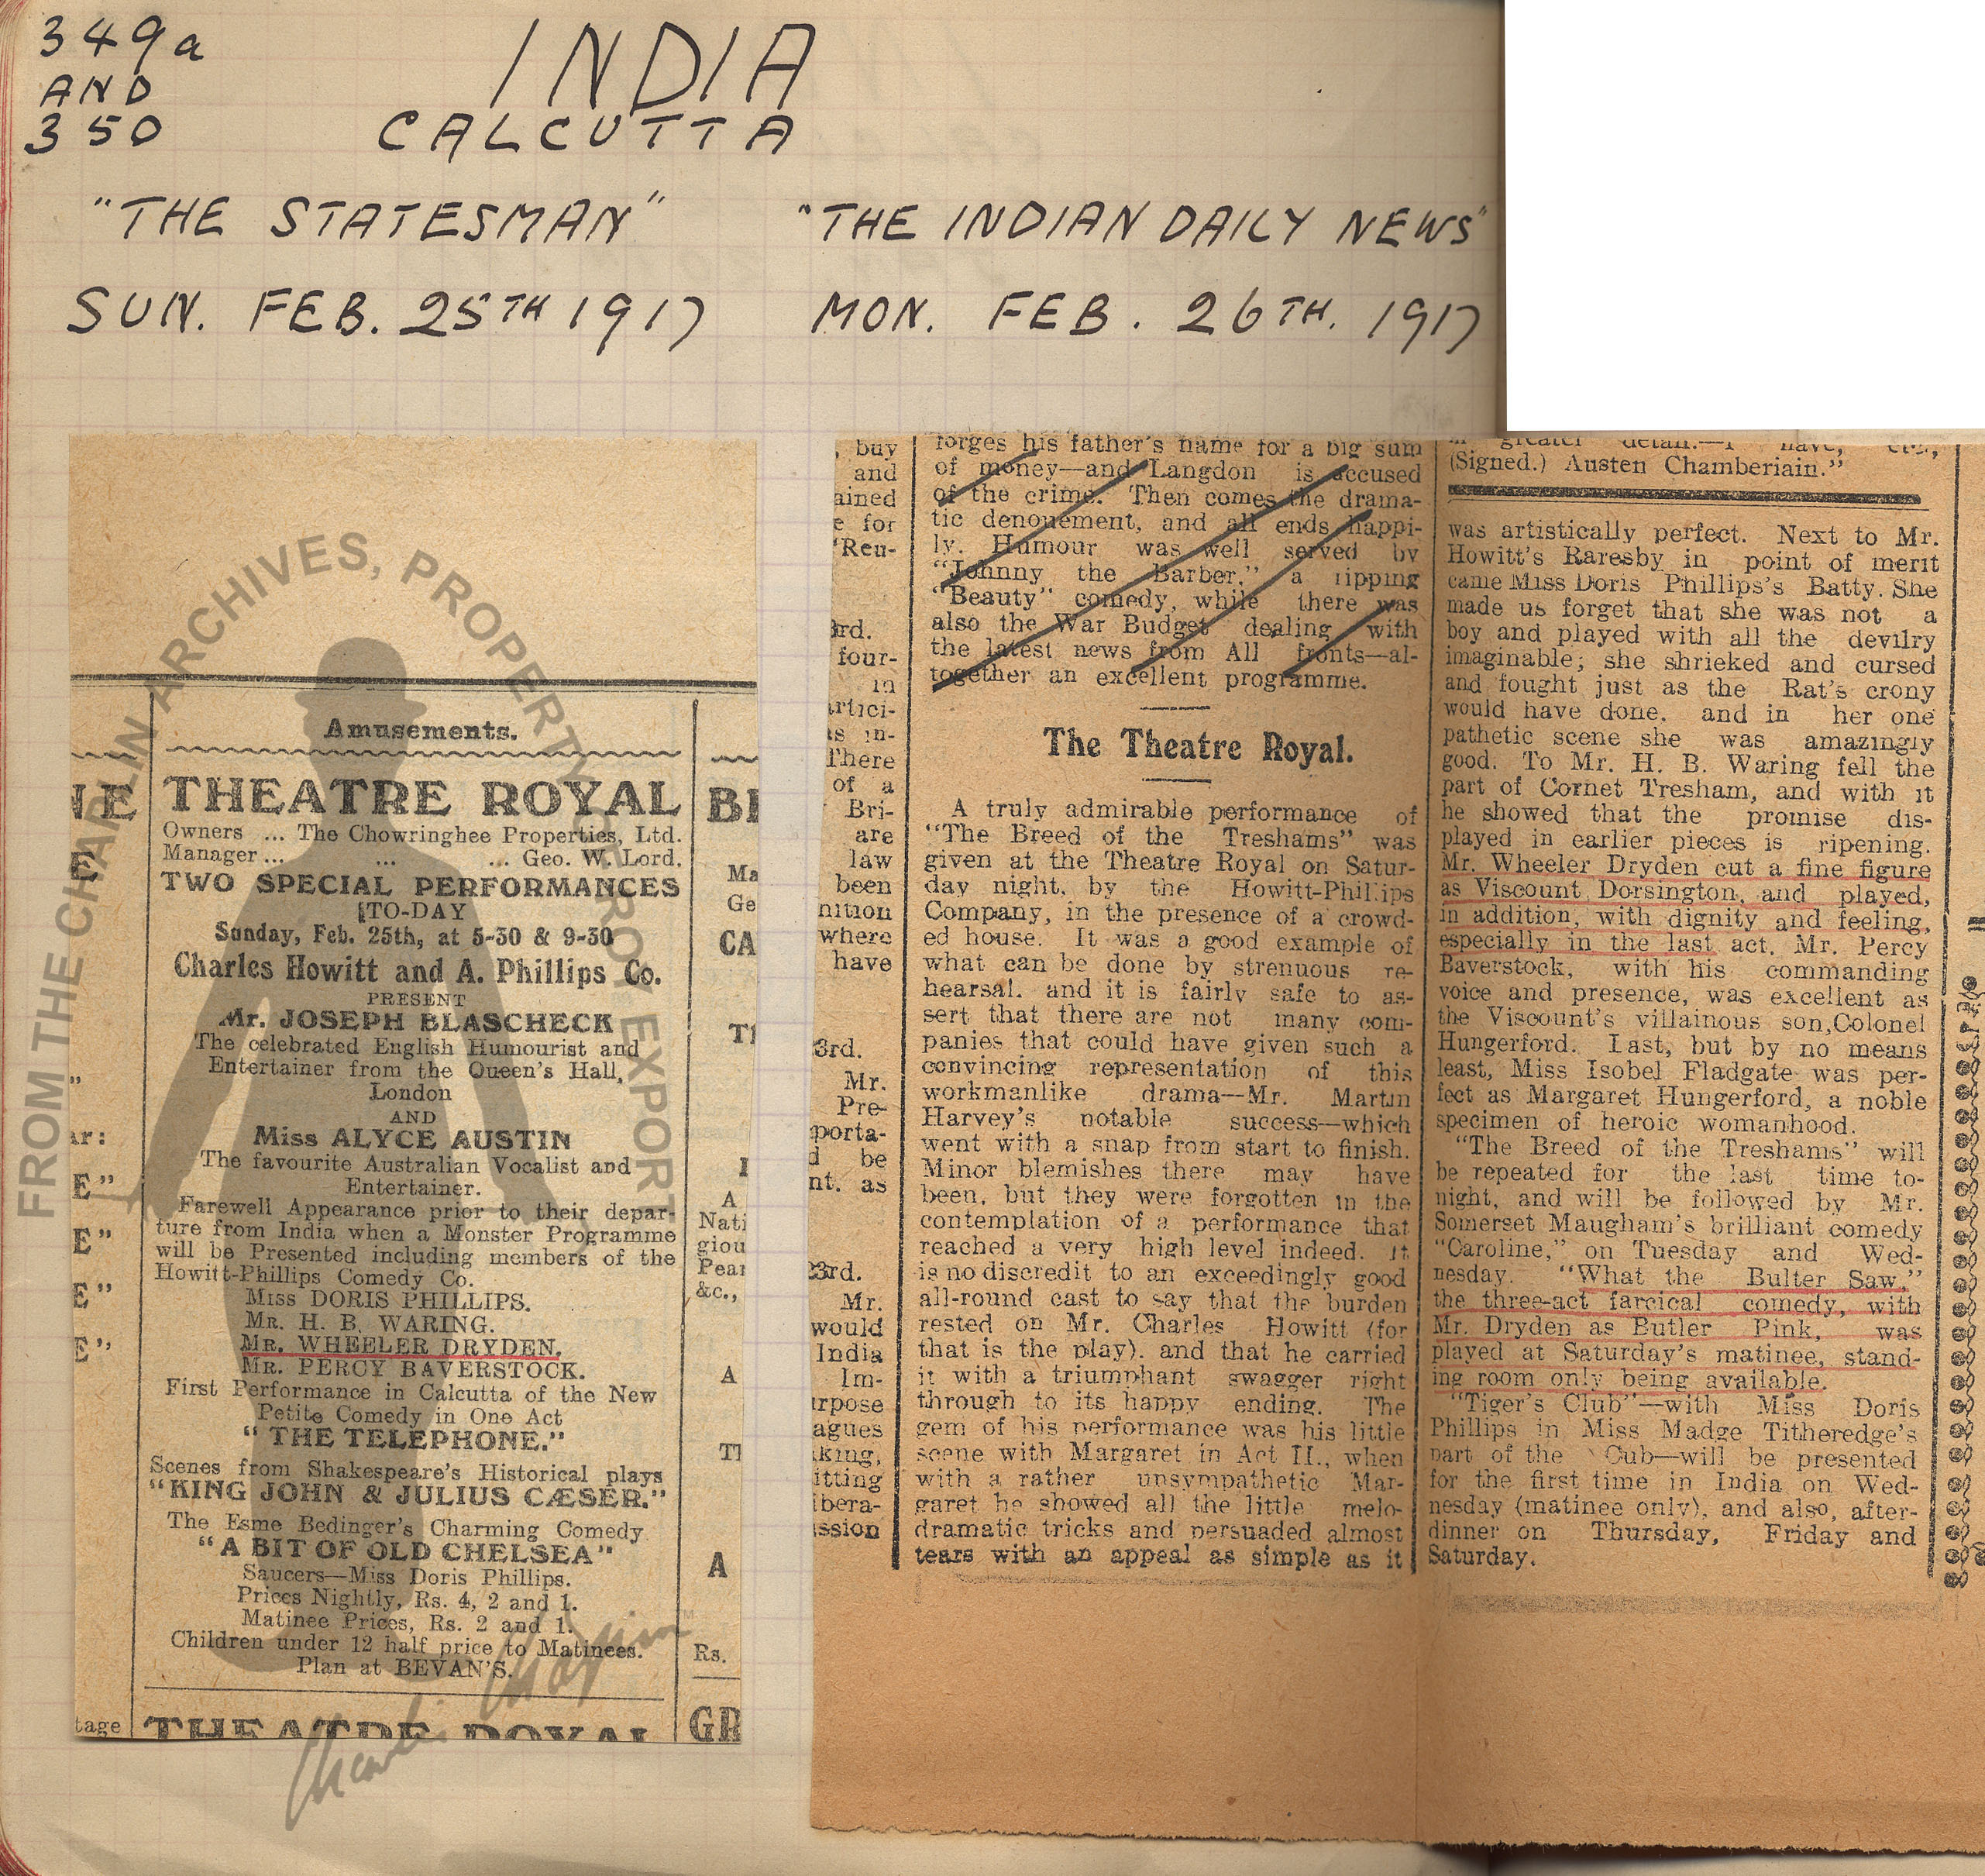 349a
AND
350
INDIA
CALCUTTA
"THE STATESMAN"
SUN. FEB. 25TH 1917
"THE INDIAN DAILY NEWS"
MON. FEB. 26TH. 1917
Amusements.
THEATRE ROYAL
Owners ... The Chowringhee Properties, Ltd.
Manager... ... ... Geo. W. Lord.
TWO SPECIAL PERFORMANCES
TO-DAY
Sunday, Feb. 25th, at 5-30 & 9-30
Charles Howitt and A. Phillips Co.
PRESENT
Mr. JOSEPH BLASCHECK
The celebrated English Humourist and
Entertainer from the Queen's Hall,
London
AND
Miss ALYCE AUSTIN
The favourite Australian Vocalist and
Entertainer.
Farewell Appearance prior to their depar-
ture from India when a Monster Programme
will be Presented including members of the
Howitt-Phillips Comedy Co.
MISS DORIS PHILLIPS.
MR. H. B. WARING.
MR. WHEELER DRYDEN.
MR. PERCY BAVERSTOCK.
First Performance in Calcutta of the New
Petite Comedy in One Act
"THE TELEPHONE."
Scenes from Shakespeare's Historical plays
"KING JOHN & JULIUS CÆSER."
The Esme Bedinger's Charming Comedy
"A BIT OF OLD CHELSEA"
Saucers—Miss Doris Phillips.
Prices Nightly, Rs. 4, 2 and 1.
Matinee Prices, Rs. 2 and 1.
Children under 12 half price to Matinees.
Plan at BEVAN'S.
THEATRE ROYAL
NE
E
"
ar:
E"
E"
E"
E"
tage
BI
Ma
Ge
CA
TI
I
A
Nati
giou
Pear
&c.,
A
TI
A
Rs.
GR
, buy
and
ained
e for
'Reu-
3rd.
four-
in
artici-
as in-
There
of a
Bri-
are
law
been
nition
where
have
3rd.
Mr.
Pre-
porta-
d be
nt. as
23rd.
Mr.
would
India
Im-
urpose
agues
aking,
itting
ibera-
ission
forges his father's name for a big sum
of money—and Langdon is accused
of the crime. Then comes the drama-
tic denouement, and all ends happi-
ly. Humour was well served by
"Johnny the Barber," a ripping
"Beauty" comedy, while there was
also the War Budget dealing with
the latest news from All fronts—al-
together an excellent programme.
The Theatre Royal.
A truly admirable performance of
"The Breed of the Treshams" was
given at the Theatre Royal on Satur-
day night, by the Howitt-Phillips
Company, in the presence of a crowd-
ed house. It was a good example of
what can be done by strenuous re-
hearsal, and it is fairly safe to as-
sert that there are not many com-
panies that could have given such a
convincing representation of this
workmanlike drama—Mr. Martin
Harvey's notable success—which
went with a snap from start to finish.
Minor blemishes there may have
been, but they were forgotten in the
contemplation of a performance that
reached a very high level indeed. It
is no discredit to an exceedingly good
all-round cast to say that the burden
rested on Mr. Charles Howitt (for
that is the play). and that he carried
it with a triumphant swagger right
through to its happy ending. The
gem of his performance was his little
scene with Margaret in Act II., when
with a rather unsympathetic Mar-
garet he showed all the little melo-
dramatic tricks and persuaded almost
tears with an appeal as simple as it
in greater detail.—I have, etc.,
(Signed.) Austen Chamberlain."
was artistically perfect. Next to Mr.
Howitt's Raresby in point of merit
came Miss Doris Phillips's Batty. She
made us forget that she was not a
boy and played with all the devilry
imaginable; she shrieked and cursed
and fought just as the Rat's crony
would have done, and in her one
pathetic scene she was amazingly
good. To Mr. H. B. Waring fell the
part of Cornet Tresham, and with it
he showed that the promise dis-
played in earlier pieces is ripening.
Mr. Wheeler Dryden cut a fine figure
as Viscount Dorsington, and played,
in addition, with dignity and feeling,
especially in the last act. Mr. Percy
Baverstock, with his commanding
voice and presence, was excellent as
the Viscount's villainous son, Colonel
Hungerford. Last, but by no means
least, Miss Isobel Fladgate was per-
fect as Margaret Hungerford, a noble
specimen of heroic womanhood.
"The Breed of the Treshams" will
be repeated for the last time to-
night, and will be followed by Mr.
Somerset Maugham's brilliant comedy
"Caroline," on Tuesday and Wed-
nesday. "What the Bulter Saw,"
the three-act farcical comedy, with
Mr. Dryden as Butler Pink, was
played at Saturday's matinee, stand-
ing room only being available.
"Tiger's Club"—with Miss Doris
Phillips in Miss Madge Titheredge's
part of the Cub—will be presented
for the first time in India on Wed-
nesday (matinee only), and also, after-
dinner on Thursday, Friday and
Saturday.
FROM THE CHAPLIN ARCHIVES, PROPERTY OF ROY EXPORT
Charlie Chaplin